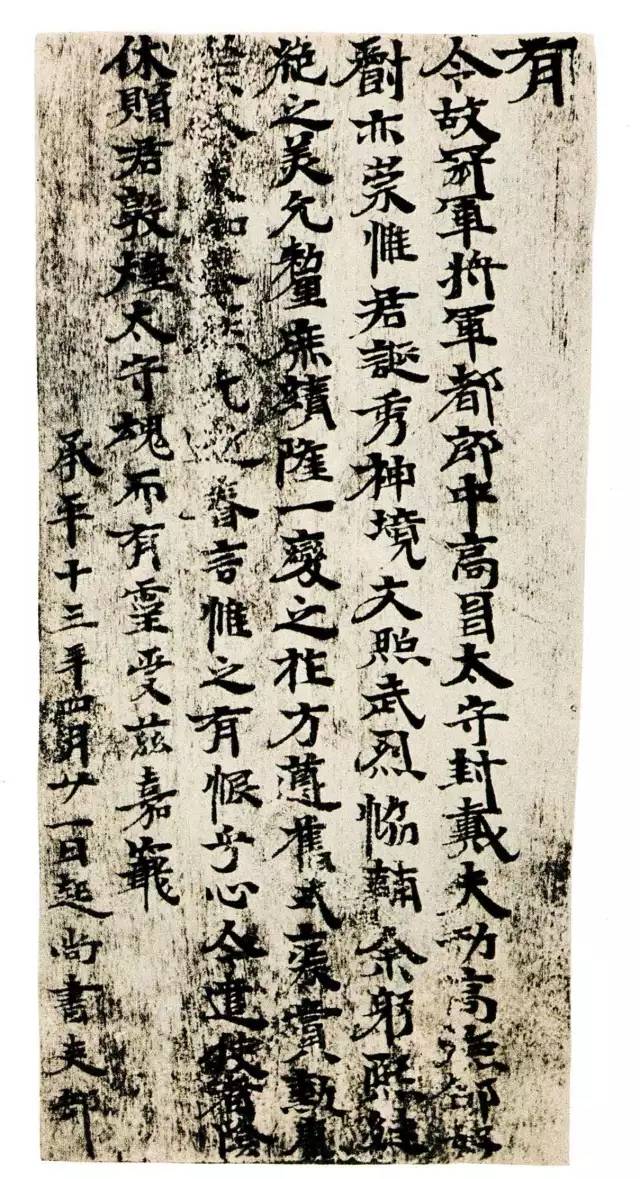 有
令故冠軍將軍都郎中高昌太守封戴夫功高邵
爵亦崇惟君誕秀神境文照武烈協輔余躬熙継
之美允釐庶績隆一變之祚方遵舊式褒賞勳
眷言惟之有恨乎心今遣使者陰
休贈君敦煌太守魂而有靈受茲嘉寵
承平十三年四月廿一日起尚書吏部